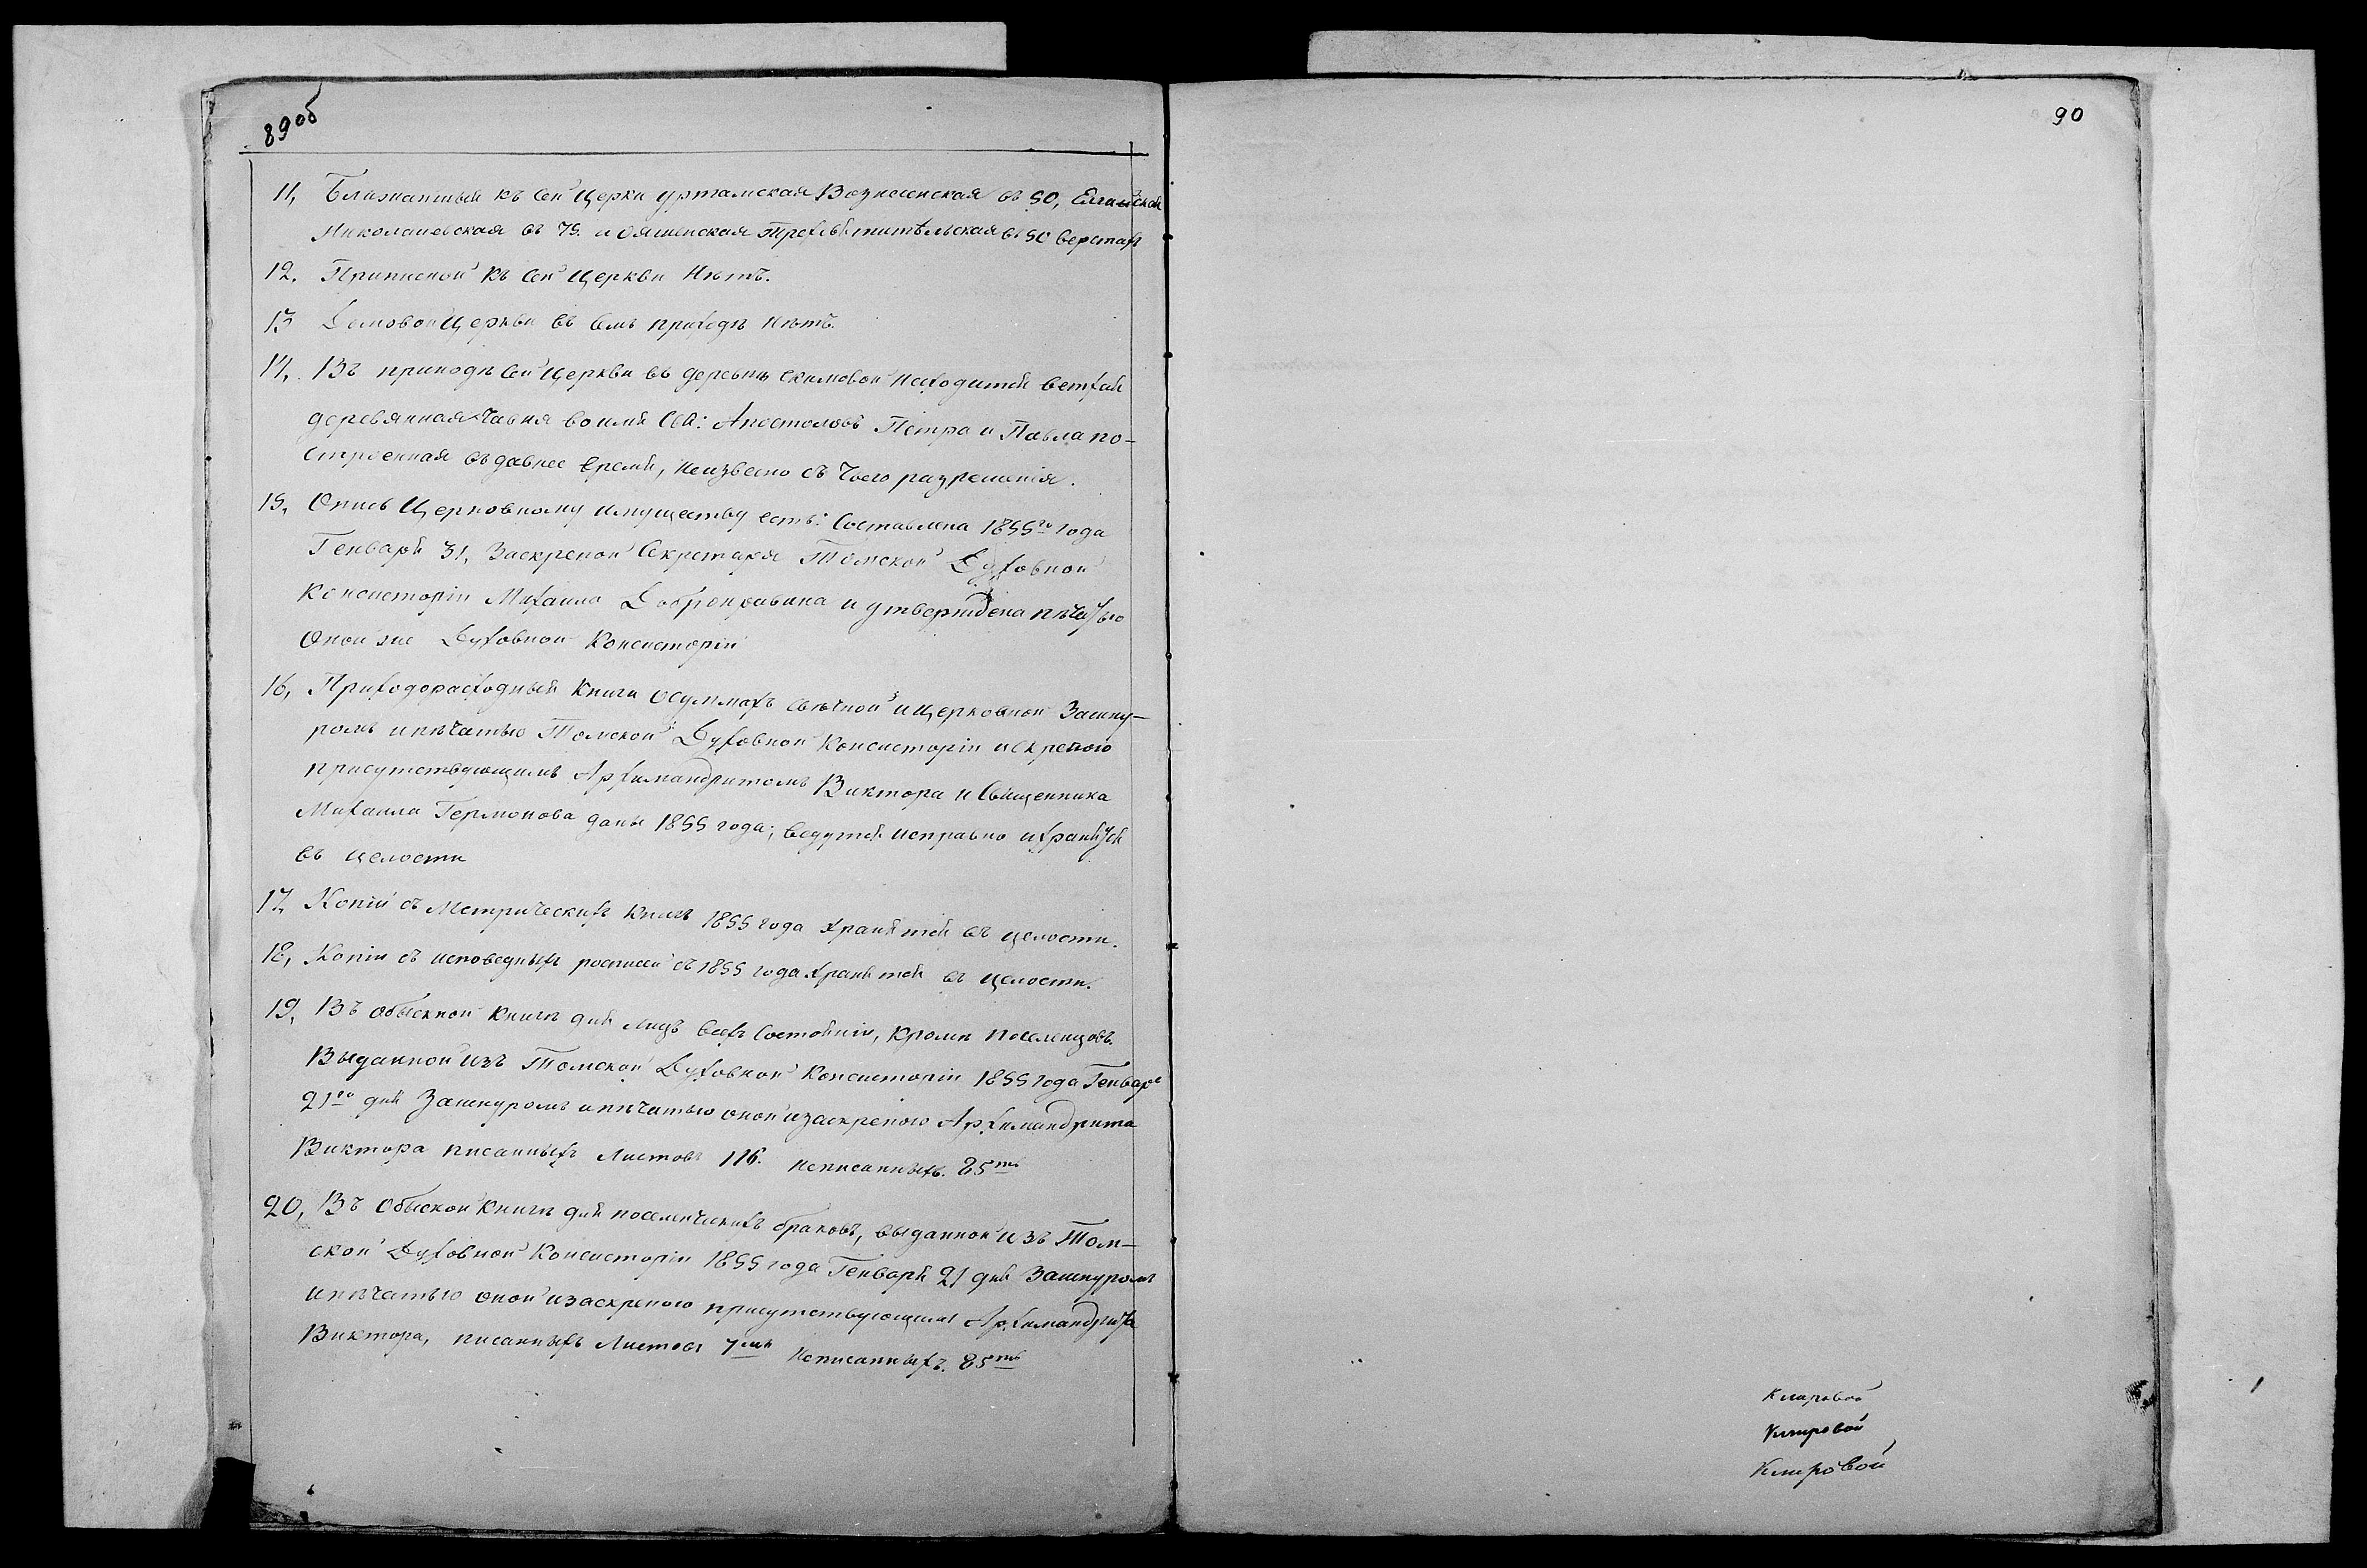 89об
11, Ближатшыя къ сей Церкви Уртамская Вознесенская въ 50, Елгайская
Николаевская въ 75. и Ояшенская Трехсвятительская въ 50 верстахъ
12. Приписной къ сей Церкви Нѣтъ.
13 Домовой Церкви въ семъ приходѣ нѣтъ.
14, Въ приходѣ сей Церкви въ деревнѣ Екимовой находится ветхая
деревянная Чавня во имя Свя: Апостоловъ Петра и Павла по-
строенная въ давнее время, неизвесно съ чьего разрешенія.
15, Опись Церковному имуществу есть: Составлена 1855го года
Генваря 31, Заскрепой Секретаря Томской Духовной
Консисторіи Михаила Добронравина и утверждена пѣчатью
Оной же Духовной Консисторіи
16, Приходорасходныя Книги о суммахъ свѣчной и церковной Зашну-
ромъ и пѣчатью Томской Духовной Консисторіи и скрепою
присутствующимъ Архимандритомъ Виктора и Священника
Михаила Гермонова даны 1855 года; ведутся исправно и хранятся
въ целости
17, Копіи съ Метрическихъ Книгъ 1855 года Хранятся въ целости.
18, Копіи съ исповедныхъ росписей съ 1855 года Хранятся въ целости.
19, Въ обыскной Книгѣ для лицъ всехъ Состояніи, кроме поселенцовъ.
Выданной изъ Томской Духовной Консисторіи 1855 года Генваря
21го дня Зашнуромъ и пѣчатью оной и заскрепою Архимандрита
Виктора писанныхъ Листовъ 116. неписанныхъ. 85ть
20, Въ Обыской Книгѣ для поселенческихъ браковъ, выданной изъ Том-
ской Духовной Консисторіи 1855 года Генваря 21 дня Зашнуромъ
и пѣчатью оной и заскрепою присутствующимъ Архимандрита
Виктора, писанныхъ Листовъ 7мь неписанныхъ. 85ть
90
Клировой
Клировой
Клировой